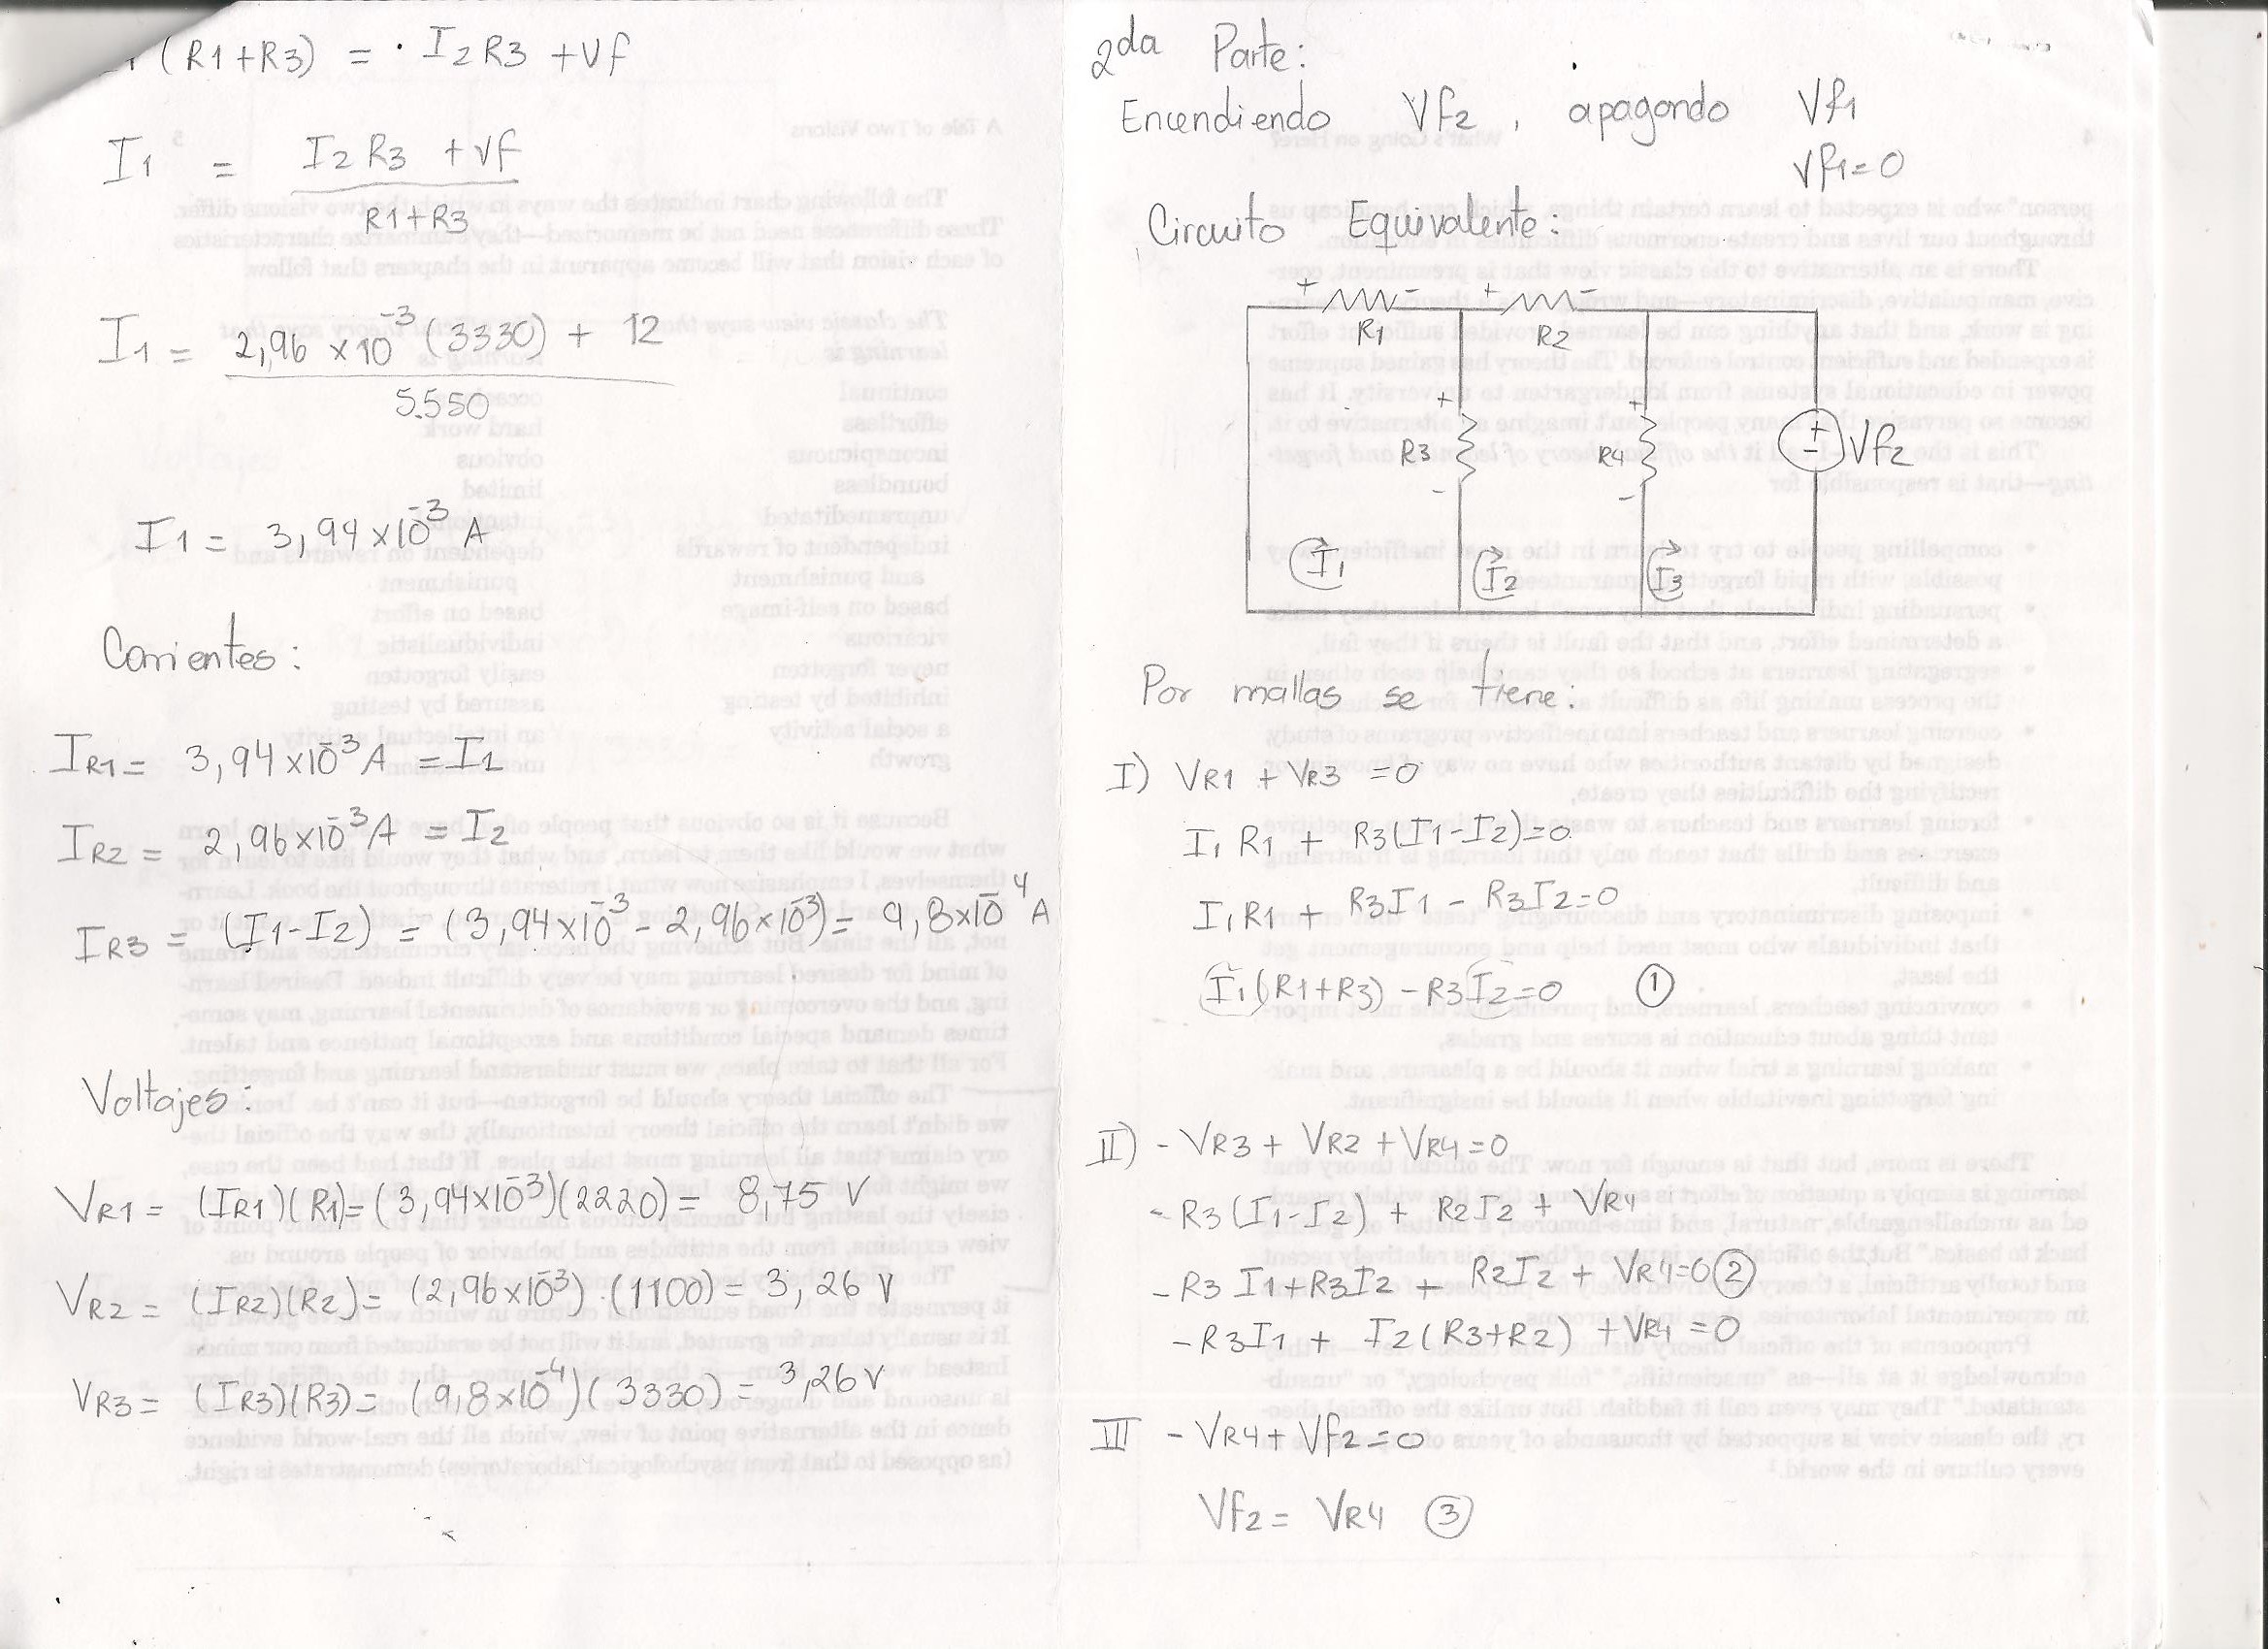 (R1+R3) = I2R3 +Vf
I1 = I2R3 +Vf
R1+R3
I1 = 2,96 x10^-3 (3330) + 12
5.550
I1 = 3,94x10^-3 A
Corrientes:
IR1= 3,94x10^-3 A =I1
IR2= 2,96x10^-3 A = I2
IR3 = (I1-I2) = (3,94x10^-3 - 2,96x10^-3)= 9,8x10^-4 A
Voltajes:
VR1= (IR1)(R1)=(3,94x10^-3)(2220)= 8,75 V
VR2= (IR2)(R2)= (2,96x10^-3).(1100)= 3,26 V
VR3= (IR3)(R3)= (9,8x10^-4)(3330)= 3,26V
2da Parte:
Encendiendo Vf2, apagando Vf1
Vf1=0
Circuito Equivalente:
+ - + -
R1 R2
+ +
R3 R4 + - Vf2
- -
I1 I2 I3
Por mallas se tiene:
I) VR1 + VR3 =0
I1R1 + R3(I1-I2)=0
I1R1 + R3I1 - R3I2=0
I1(R1+R3) -R3I2=0 ①
II) -VR3+ VR2 +VR4=0
-R3(I1-I2) + R2I2 + VR4
-R3I1+R3I2 + R2I2 + VR4=0 ②
-R3I1 + I2(R3+R2) +VR4 =0
III -VR4+ Vf2=0
Vf2= VR4 ③